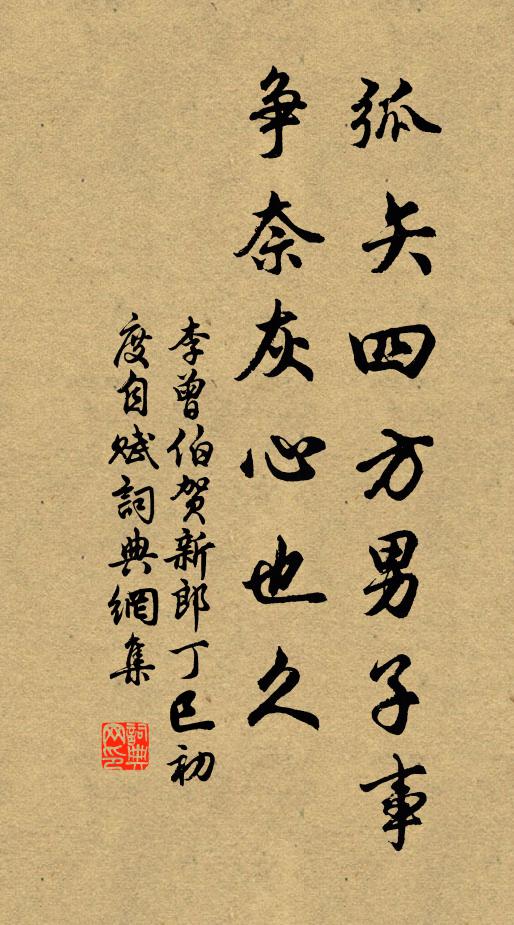 弧矢四方男子事
争奈灰心也久
李曾伯贺新郎丁巳初
度自赋詞典網集
詞典网印